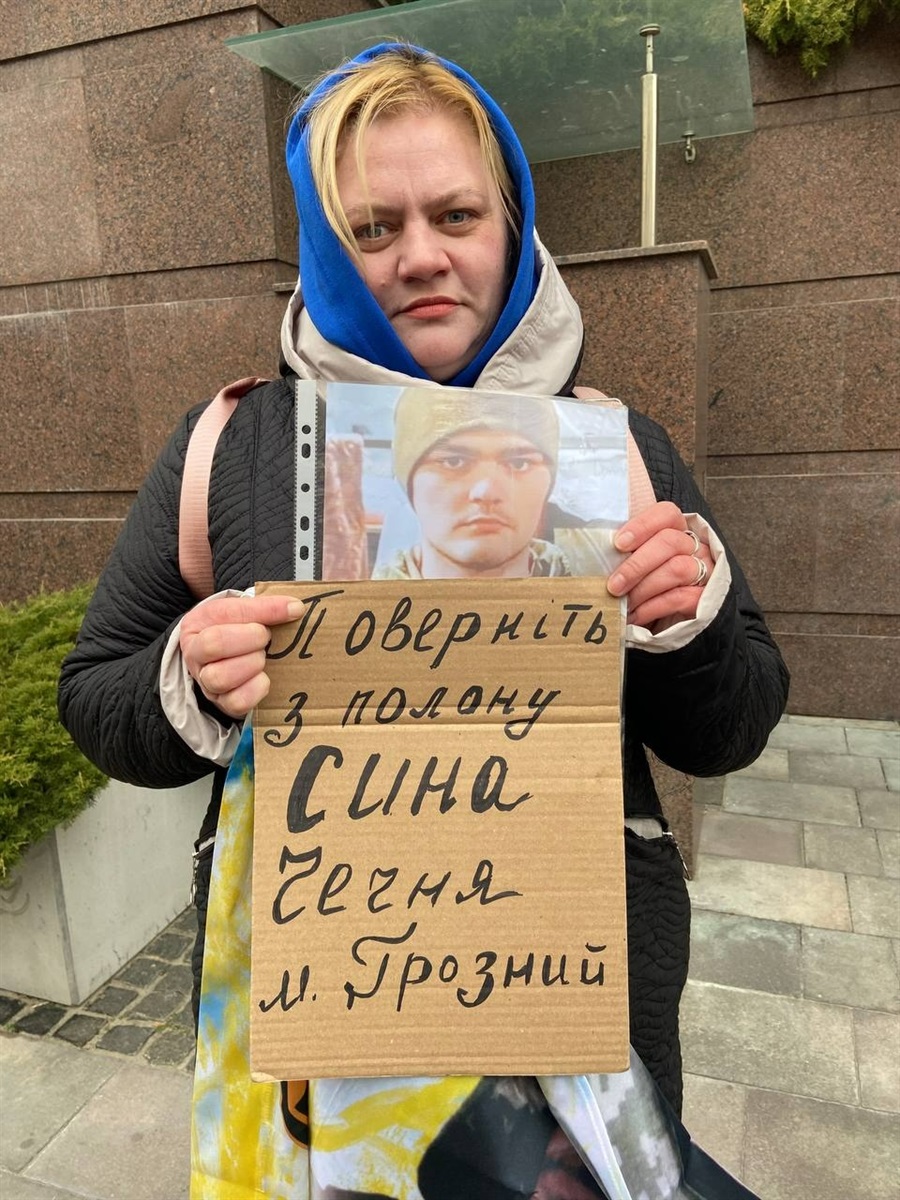 Поверніть
з полону
Сина
Чечня
м. Грозний